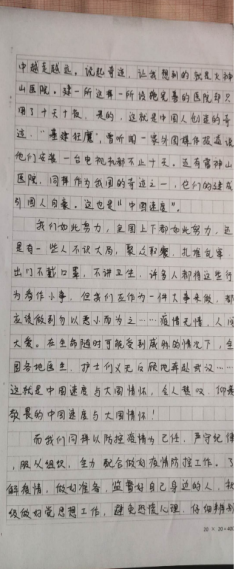 中越走越远。说起奇迹，让我想到的就是火神
山医院。建一所这样一所设施完善的医院却只
用了十天十夜，是的，这就是中国人创造的奇
迹，"基建狂魔"。曾听闻一家外国媒体报道说
他们安装一台电视机都不止十天。还有雷神山
医院，同样作为我国的奇迹之一，它们的建成
引国人自豪。这也是"中国速度"。
我们如此努力，全国上下都如此努力，还
是有一些人不识大局，聚众
出门不戴口罩，不讲卫生，许多人都将这些行
为看作小事，但我们应作为一件大事来做，都
应该做到勿以恶小而为之……疫情无情，人间
大爱。在生命随时可能受到威胁的情况下，全
国各地医生、护士们义无反顾地奔赴武汉……
这就是中国速度与大国情怀，令人赞叹，仰慕
敬畏的中国速度与大国情怀！
而我们同样以防控疫情为己任，严守纪律
，服从组织，全力配合做好疫情防控工作。了
解疫情，做好准备，监督好自己身边的人，积
极做好党思想工作，避免恐慌心理，仔细辨别
20 × 20=400